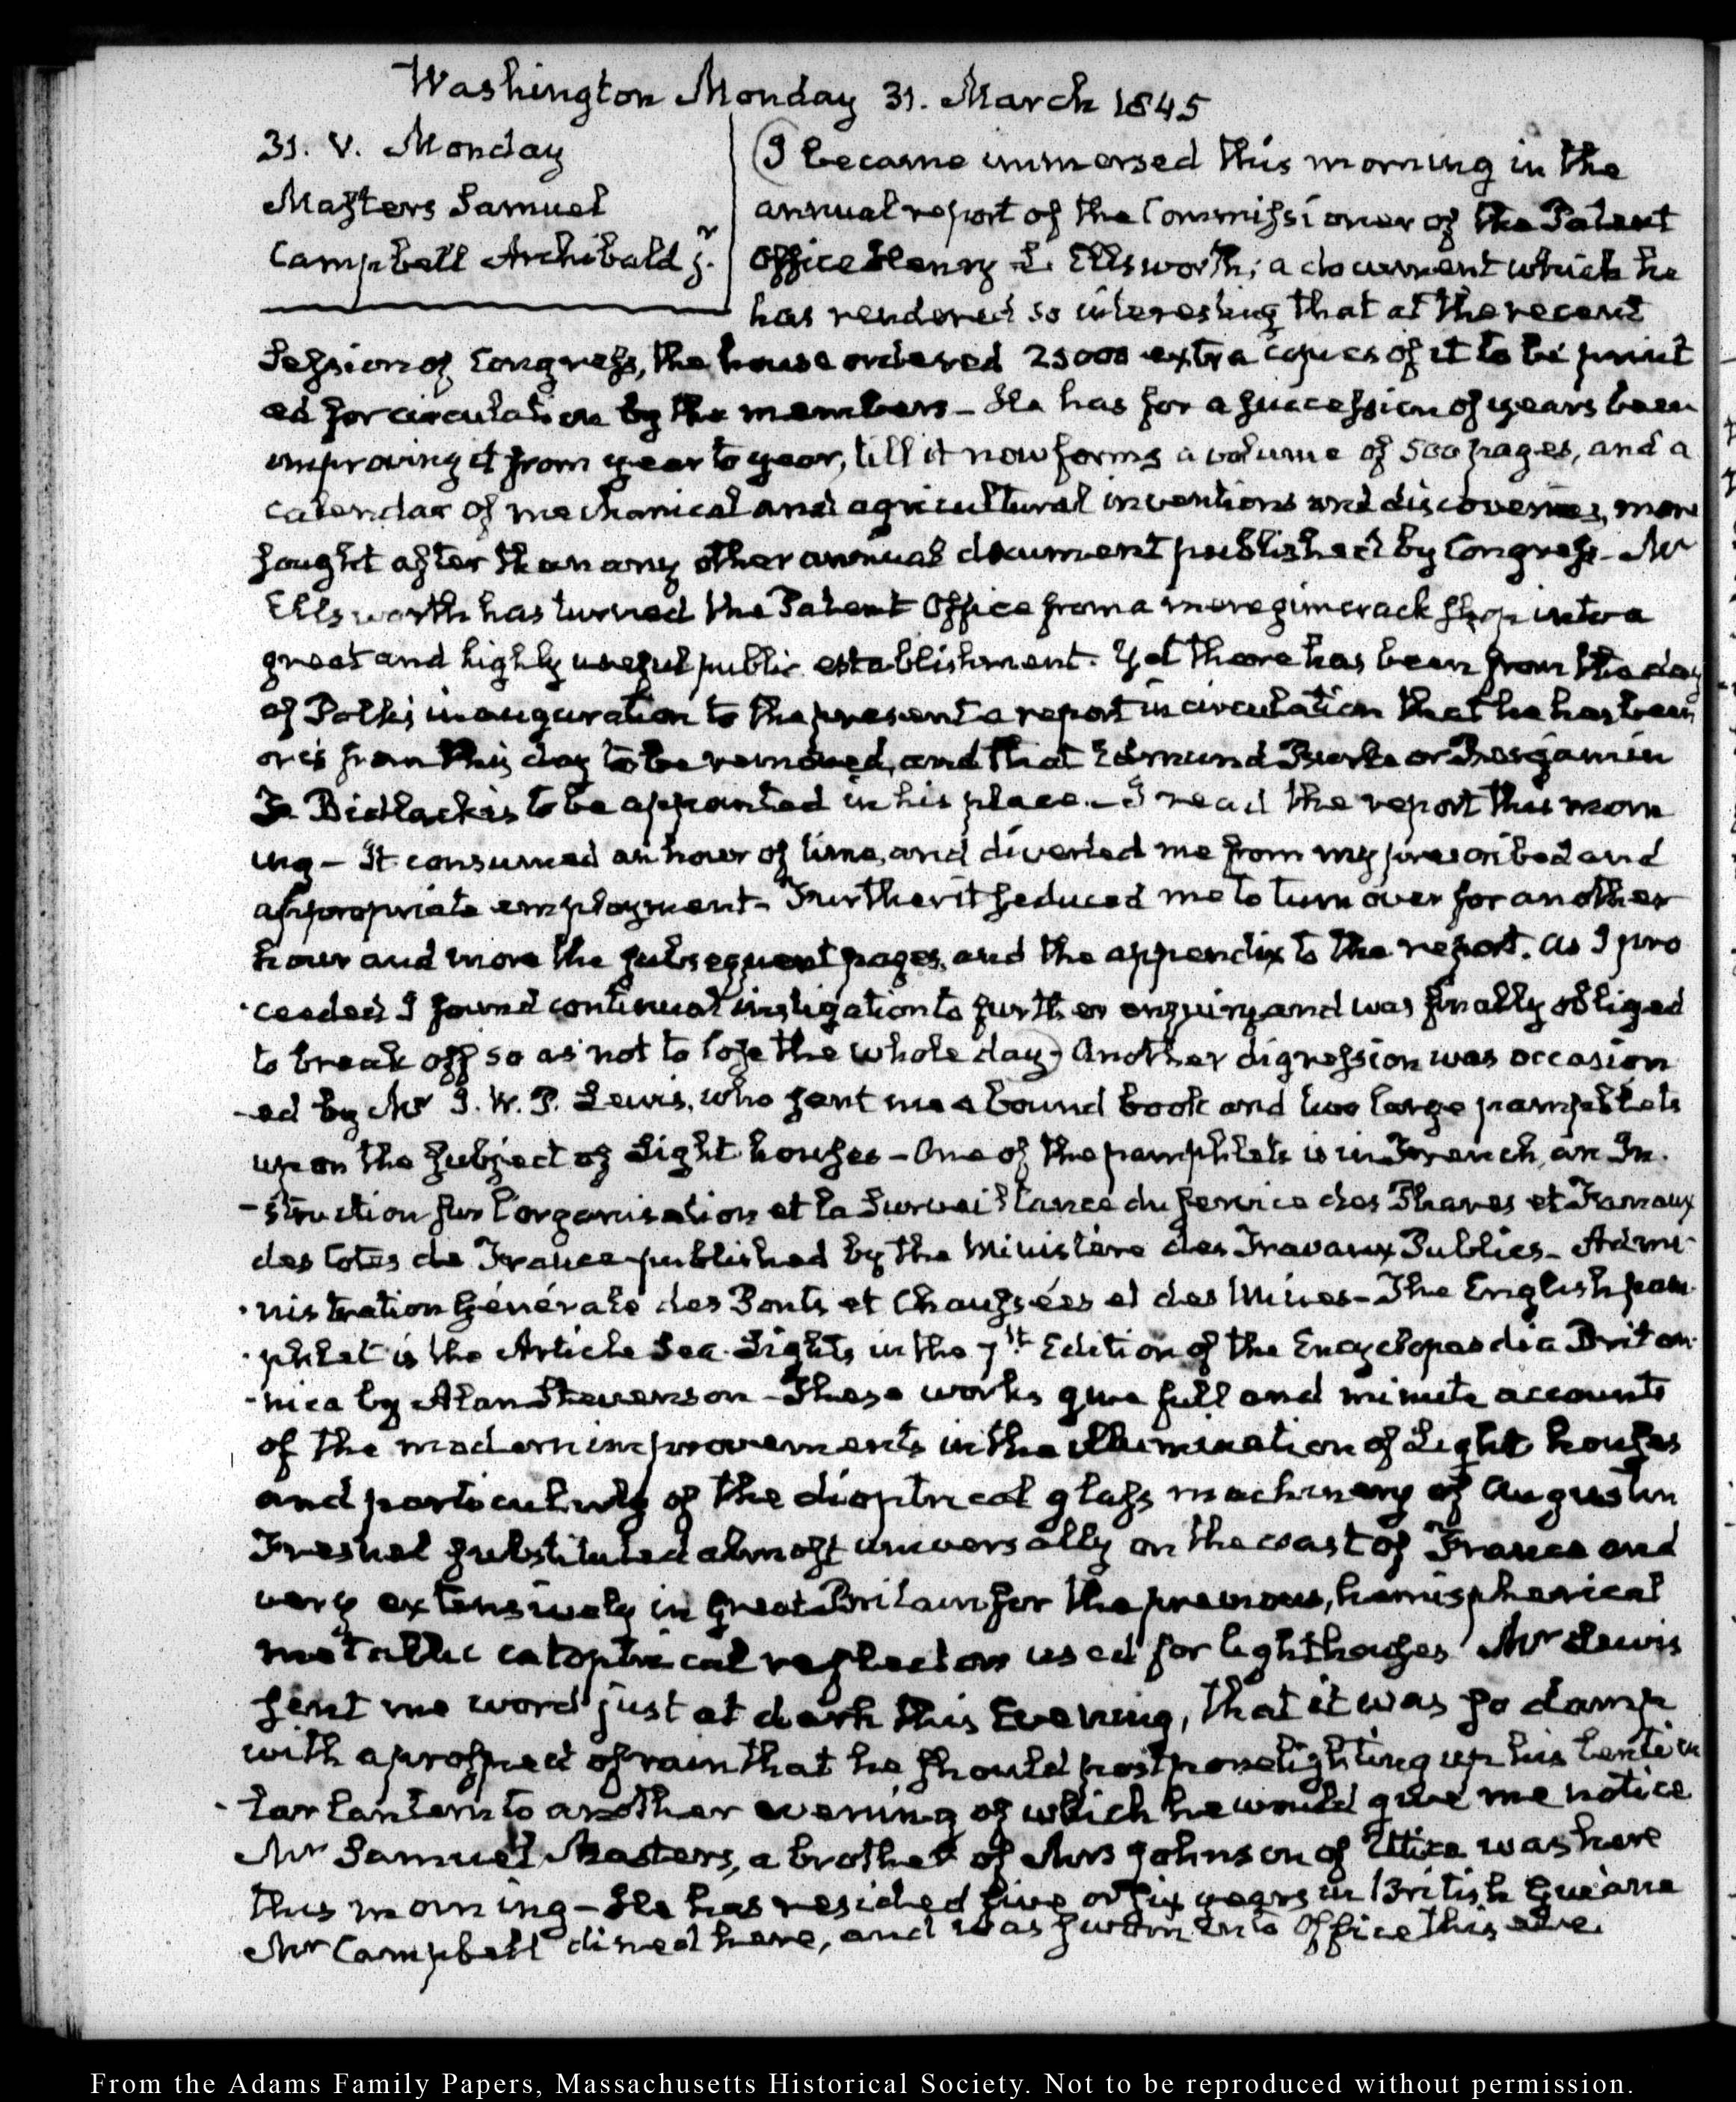 Washington Monday 31. March 1845
31. V. Monday
Masters Samuel
Campbell Archibald jr.
I became immersed this morning in the
annual report of the Commissioner of the Patent
Office Henry L. Ellsworth; a document which he
has rendered so interesting that at the recent
Session of Congress, the house ordered 25000 extra copies of it to be print
ed for circulation by the members – He has for a succession of years been
improving it from year to year, till it now forms a volume of 500 pages, and a
calendar of mechanical and agricultural inventions and discoveries, more
sought after than any other annual document published by Congress – Mr
Ellsworth has turned the Patent Office from a mere gimcrack shop into a
great and highly useful public establishment. Yet there has been from the day
of Polk's inauguration to the present a report in circulation that he has been
or is from this day to be removed, and that Edmund Burke or Benjamin
A. Bidlack is to be appointed in his place. – I read the report this morn
ing – It consumed an hour of time, and diverted me from my prescribed and
appropriate employment – Further it seduced me to turn over for another
hour and more the subsequent pages, and the appendix to the report. As I pro
-ceeded I found continual instigation to further enquiry and was finally obliged
to break off so as not to lose the whole day – Another digression was occasion
-ed by Mr I. W. P. Lewis, who sent me a bound book and two large pamphlets
upon the subject of Light houses – One of the pamphlets is in French, an In
-struction sur l'organisation et la Surveillance du Service des Phares et Fanaux
des Cotes de France published by the Ministère des Travaux Publics – Admi-
-nistration Générale des Ponts et Chaussées et des Mines – The English pam-
-phlet is the Article Sea-Lights in the 7th Edition of the Encyclopaedia Britan-
-nica by Alan Stevenson – These works give full and minute accounts
of the modern improvements in the illumination of Light houses
and particularly of the dioptrical glass machinery of Augustin
Fresnel substituted almost universally on the coast of France and
very extensively in Great Britain for the previous, hemispherical
metallic catoptrical reflectors used for lighthouses Mr Lewis
sent me word just at dark this Evening, that it was so damp
with a prospect of rain that he should postpone lighting up his lenticu
-lar lantern to another evening of which he would give me notice
Mr Samuel Masters, a brother of Mrs Johnson of Utica was here
this morning – He has resided five or six years in British Guiana
Mr Campbell dined here, and was sworn into Office this eve.
From the Adams Family Papers, Massachusetts Historical Society. Not to be reproduced without permission.